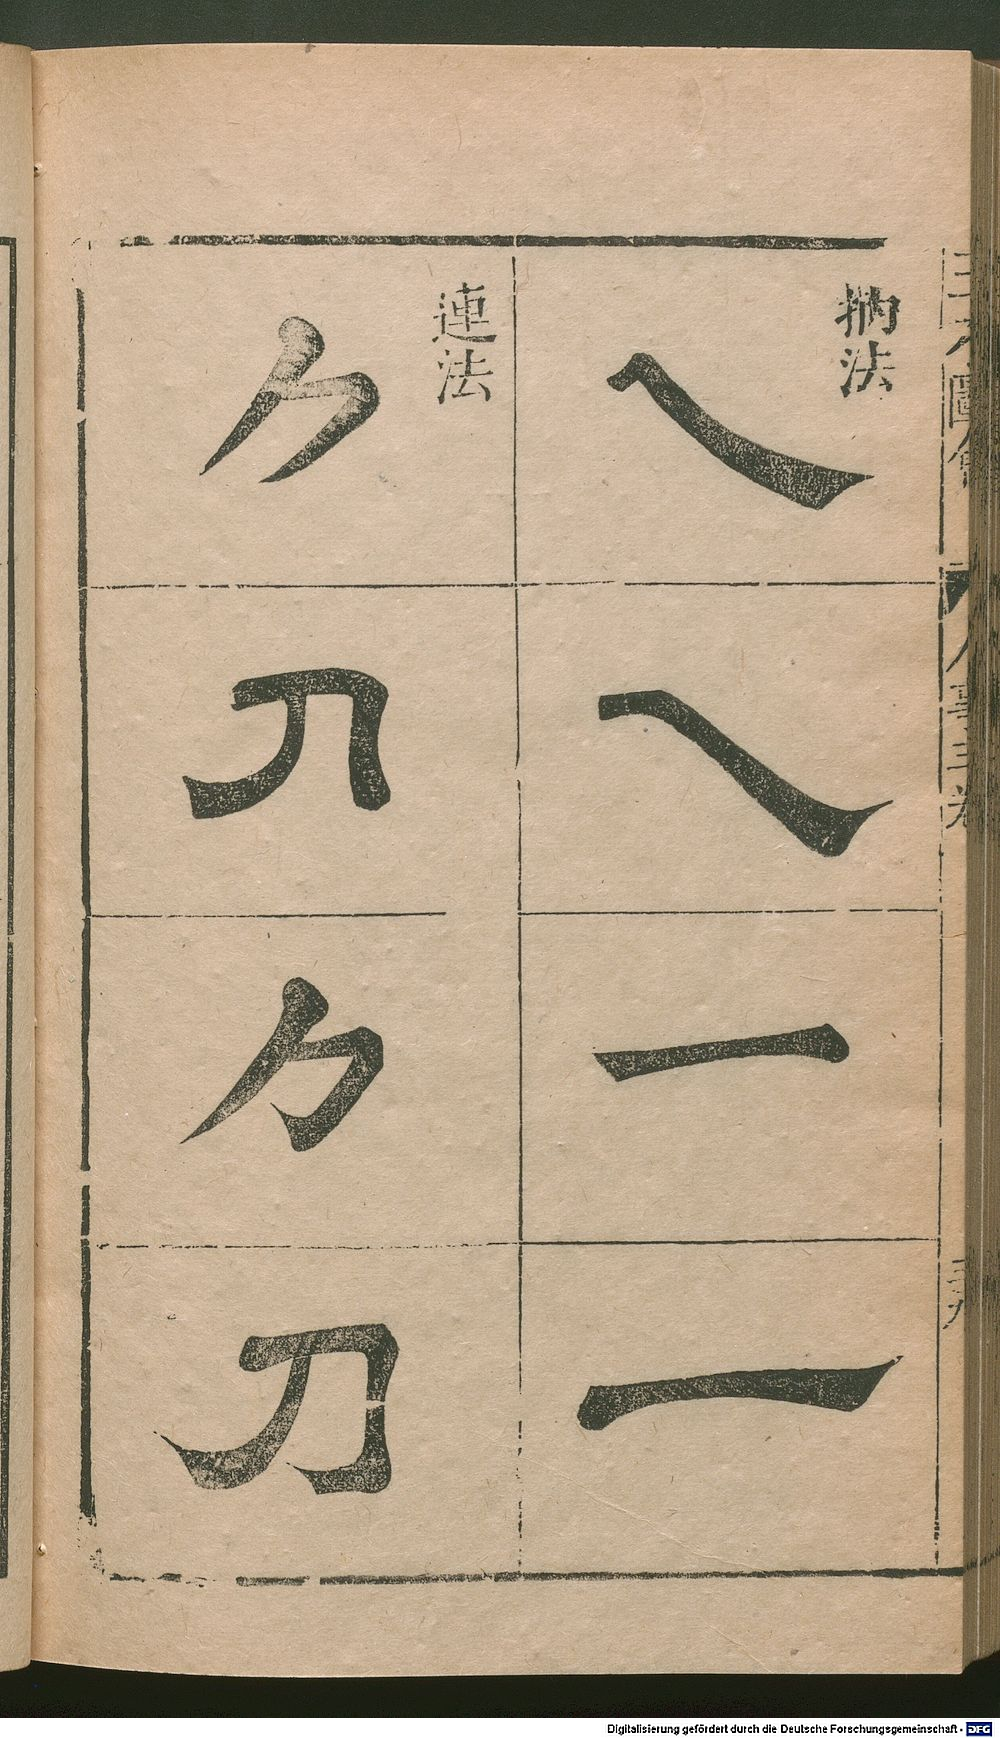 捬法
連法
三才圖會 人事三卷
Digitalisierung gefördert durch die Deutsche Forschungsgemeinschaft - DFG